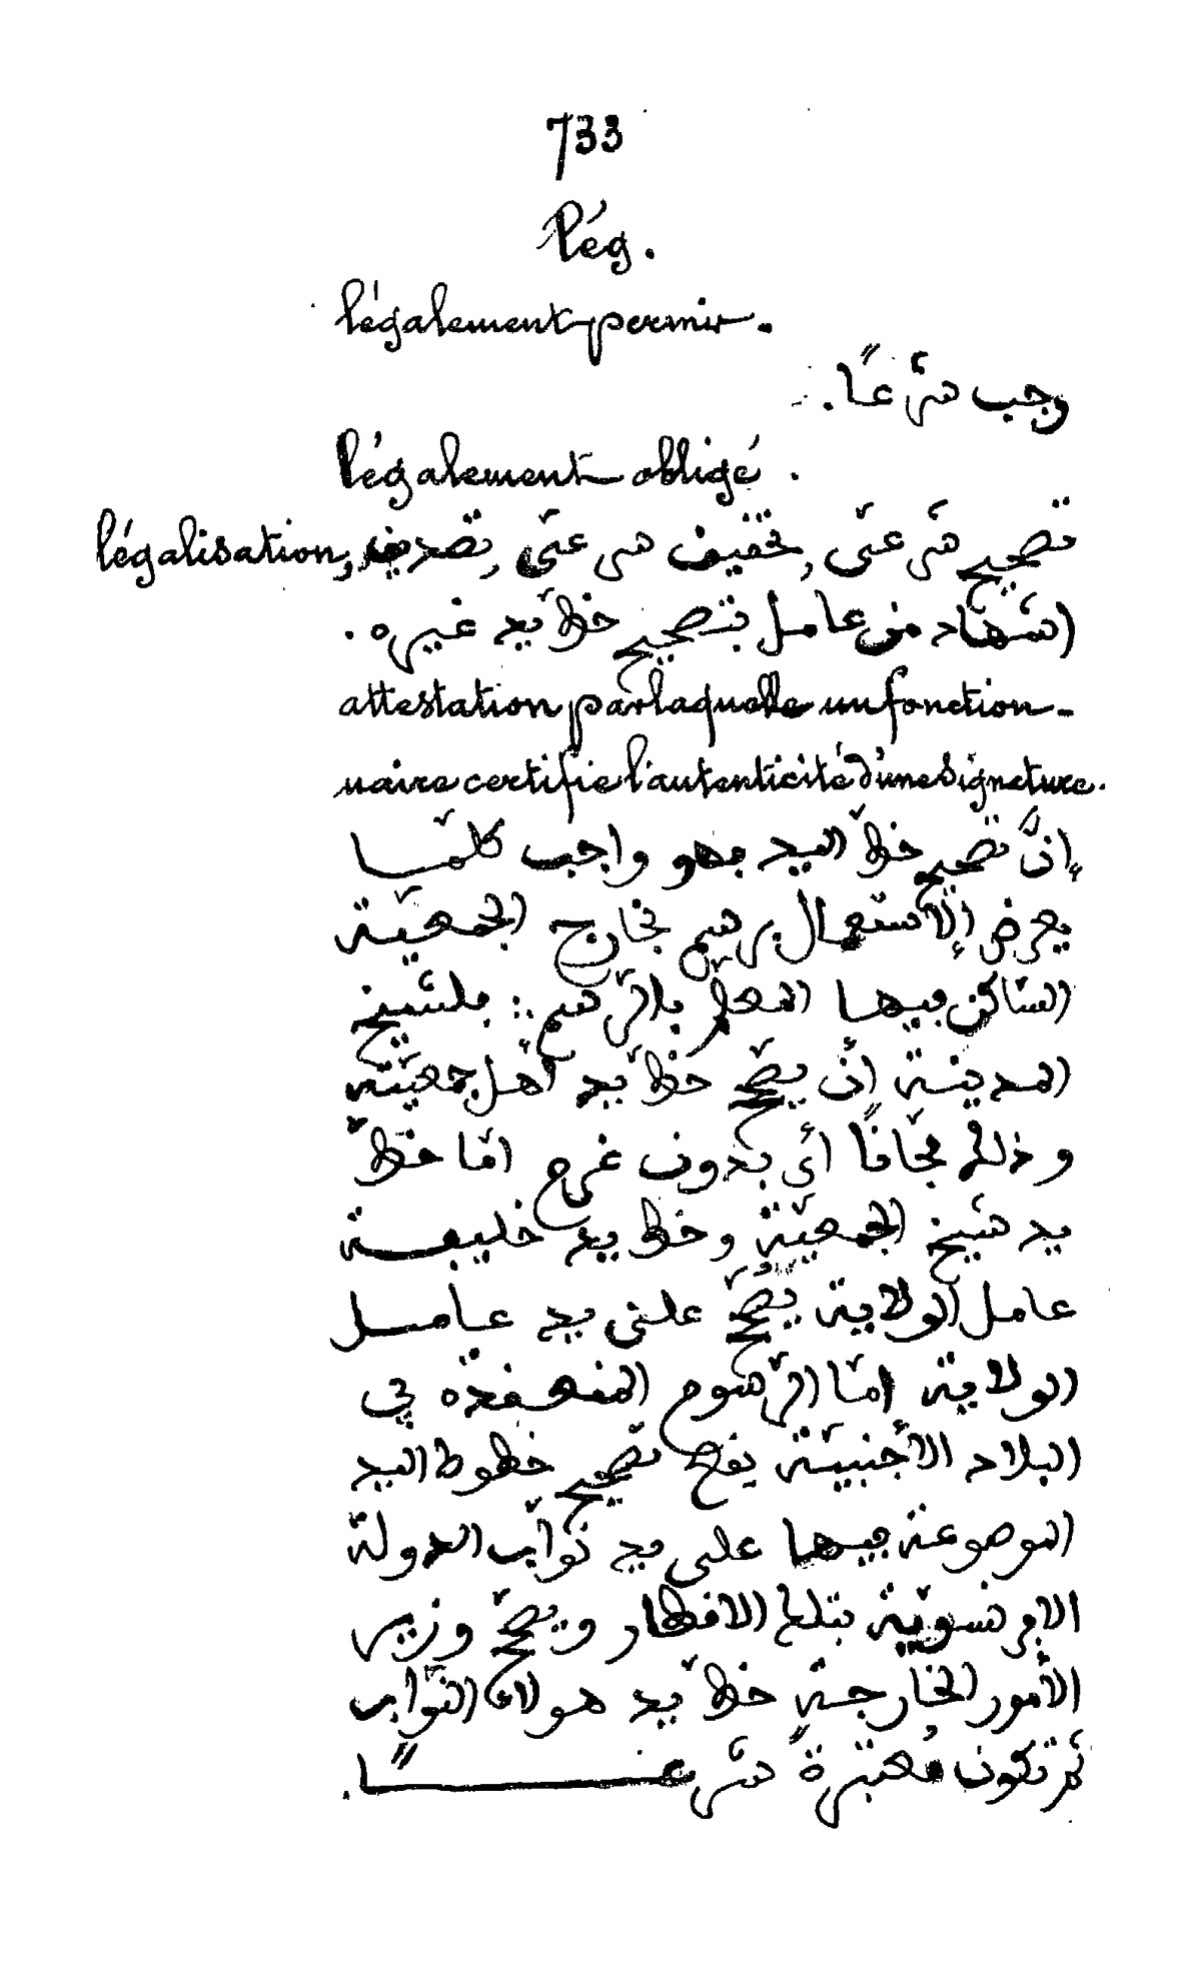 733
Lég.
légalement permis.
وجب شرعًا.
légalement obligé.
légalisation, تصحيح شرعىّ, تحقيق شرعىّ, تصديق,
اشهاد من عامل بتصحيح خطّ يد غيره.
attestation par laquelle un fonction-
naire certifie l'autenticité d'une signature.
إنّ تصحيح خطّ اليد فهو واجب كلّما
يعرض الاستعمال برسم بخارج الجمعيّة
السّاكن فيها المعلم بالرّسم : فلشيخ
المدينة أن يصحّح خطّ يد أهل جمعيّته
وذلك مجّانًا أي بدون غرم امّا خطّ
يد شيخ الجمعيّة وخطّ يد خليفة
عامل الولاية يصحّح على يد عامل
الولاية امّا الرّسوم المنعقدة في
البلاد الأجنبيّة يقع تصحيح خطوط اليد
الموضوعة فيها على يد نوّاب الدولة
الافرنسويّة بتلك الاقطار ويصحّح وزير
الأمور الخارجة خطّ يد هولاء النوّاب
ثمّ تكون مُعتبرةً شرعًا.